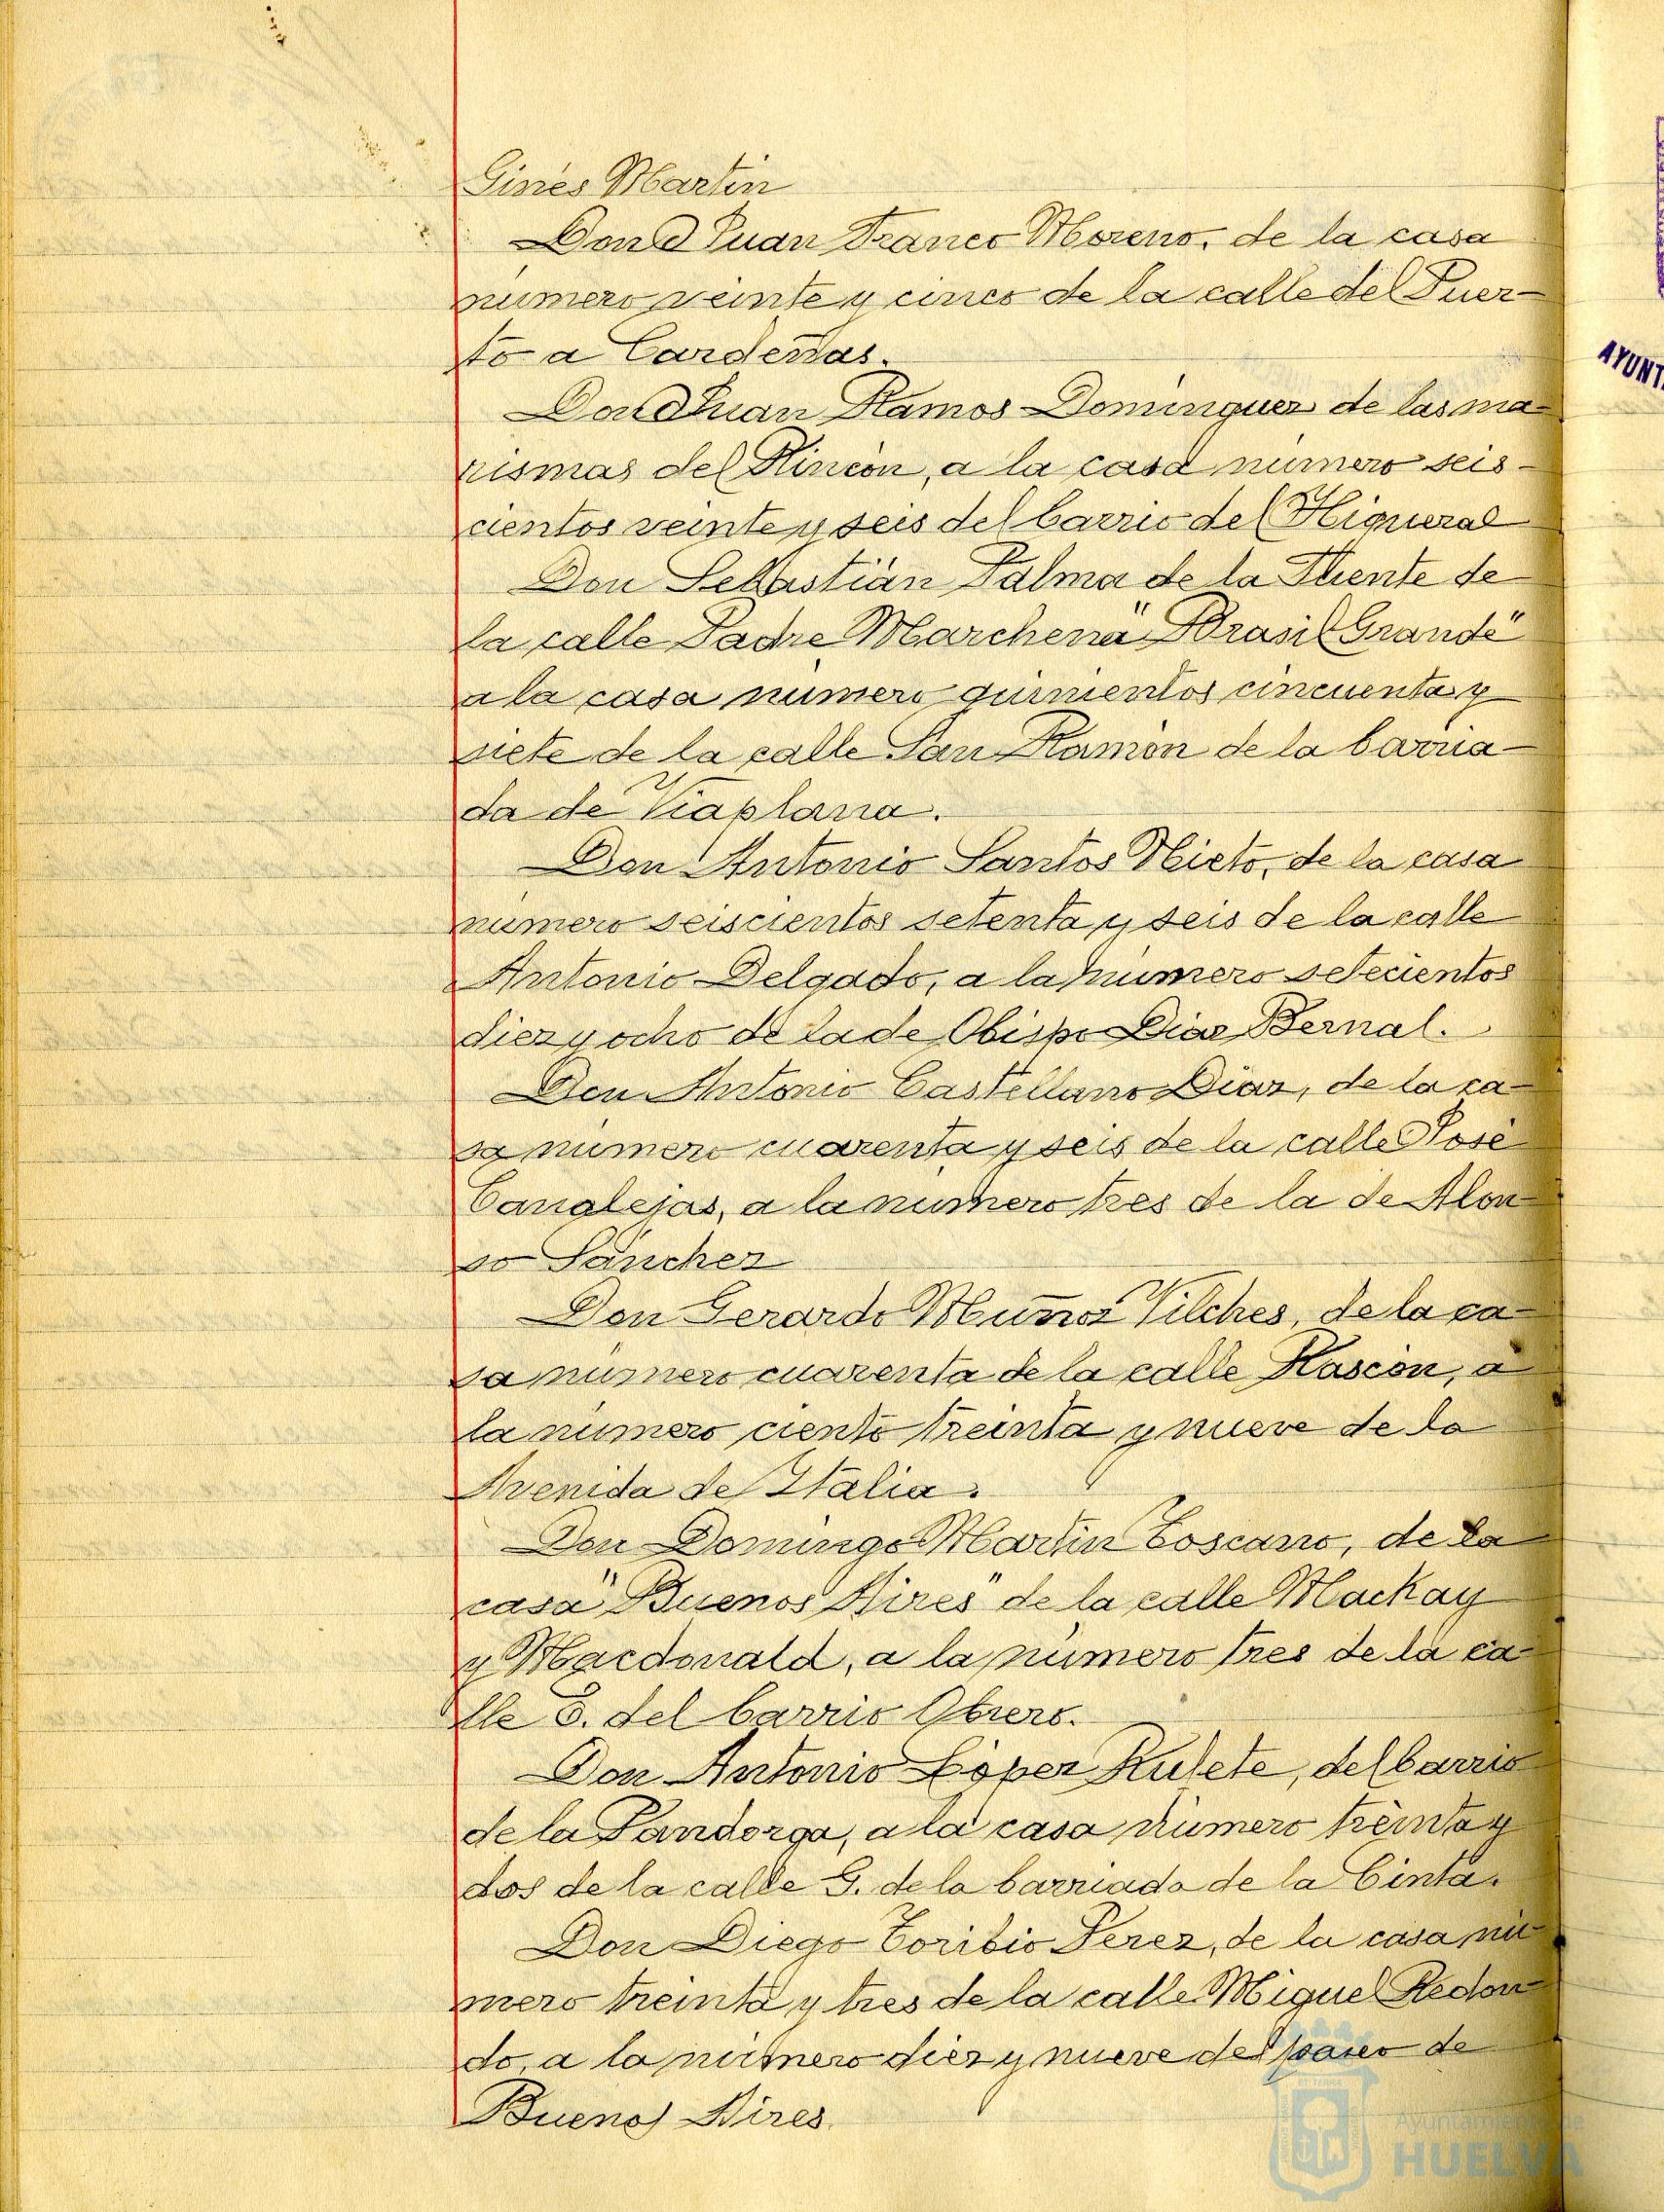 Ginés Martin
Don Juan Franco Moreno, de la casa
número veinte y cinco de la calle del Puer-
to a Cardeñas.
Don Juan Ramos Dominguez de las ma-
rismas del Rincón, a la casa número seis-
cientos veinte y seis del barrio del Higueral
Don Sebastián Palma de la Fuente de
la calle Padre Marchena "Brasil Grande"
a la casa número quinientos cincuenta y
siete de la calle San Ramón de la barria-
da de Viaplana.
Don Antonio Santos Nieto, de la casa
número seiscientos setenta y seis de la calle
Antonio Delgado, a la número setecientos
diez y ocho de la de Obispo Diaz Bernal.
Don Antonio Castellano Diaz, de la ca-
sa número cuarenta y seis de la calle José
Canalejas, a la número tres de la de Alon-
so Sánchez
Don Gerardo Muñoz Vilches, de la ca-
sa número cuarenta de la calle Rascón, a
la número ciento treinta y nueve de la
Avenida de Italia.
Don Domingo Martin Toscano, de la
casa "Buenos Aires" de la calle Mackay
y Macdonald, a la número tres de la ca-
lle E. del barrio Obrero.
Don Antonio López Rulete, del barrio
de la Pandorga, a la casa número treinta y
dos de la calle G. de la barriada de la Cinta.
Don Diego Toribio Perez, de la casa nú-
mero treinta y tres de la calle Miguel Redon-
do, a la número diez y nueve del paseo de
Buenos Aires
AYUNT
Ayuntamiento de
HUELVA